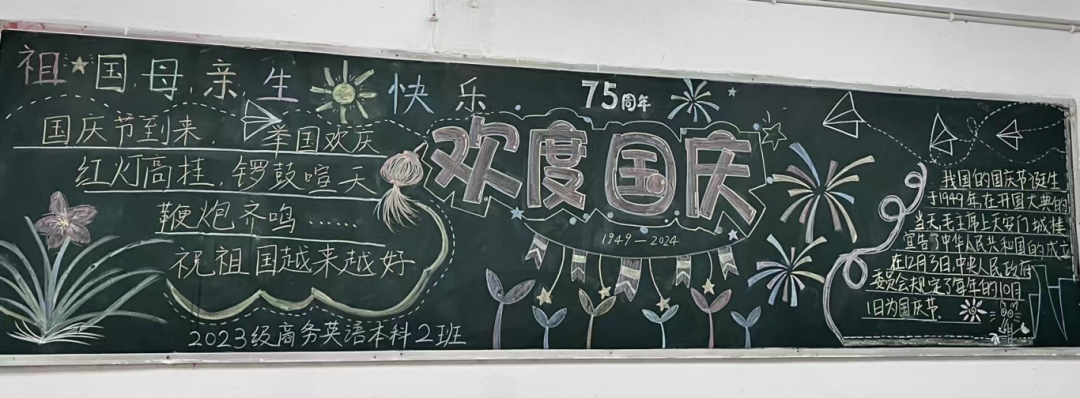 祖国母亲生快乐
国庆节到来，举国欢庆
红灯高挂，锣鼓喧天
鞭炮齐鸣……
祝祖国越来越好
2023级商务英语本科2班
75周年
欢度国庆
1949—2024
我国的国庆节诞生
于1949年在开国大典的
当天毛主席上天安门城楼
宣告了中华人民共和国的成立
在12月3日,中央人民政府
委员会规定了每年的10月
1日为国庆节.